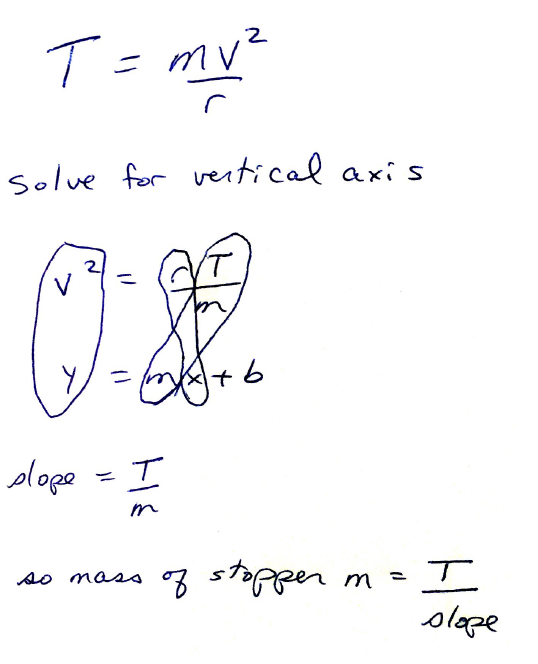 T = mv²/r
Solve for vertical axis
v² = rT/m
y = mx + b
slope = T/m
so mass of stopper m = T/slope